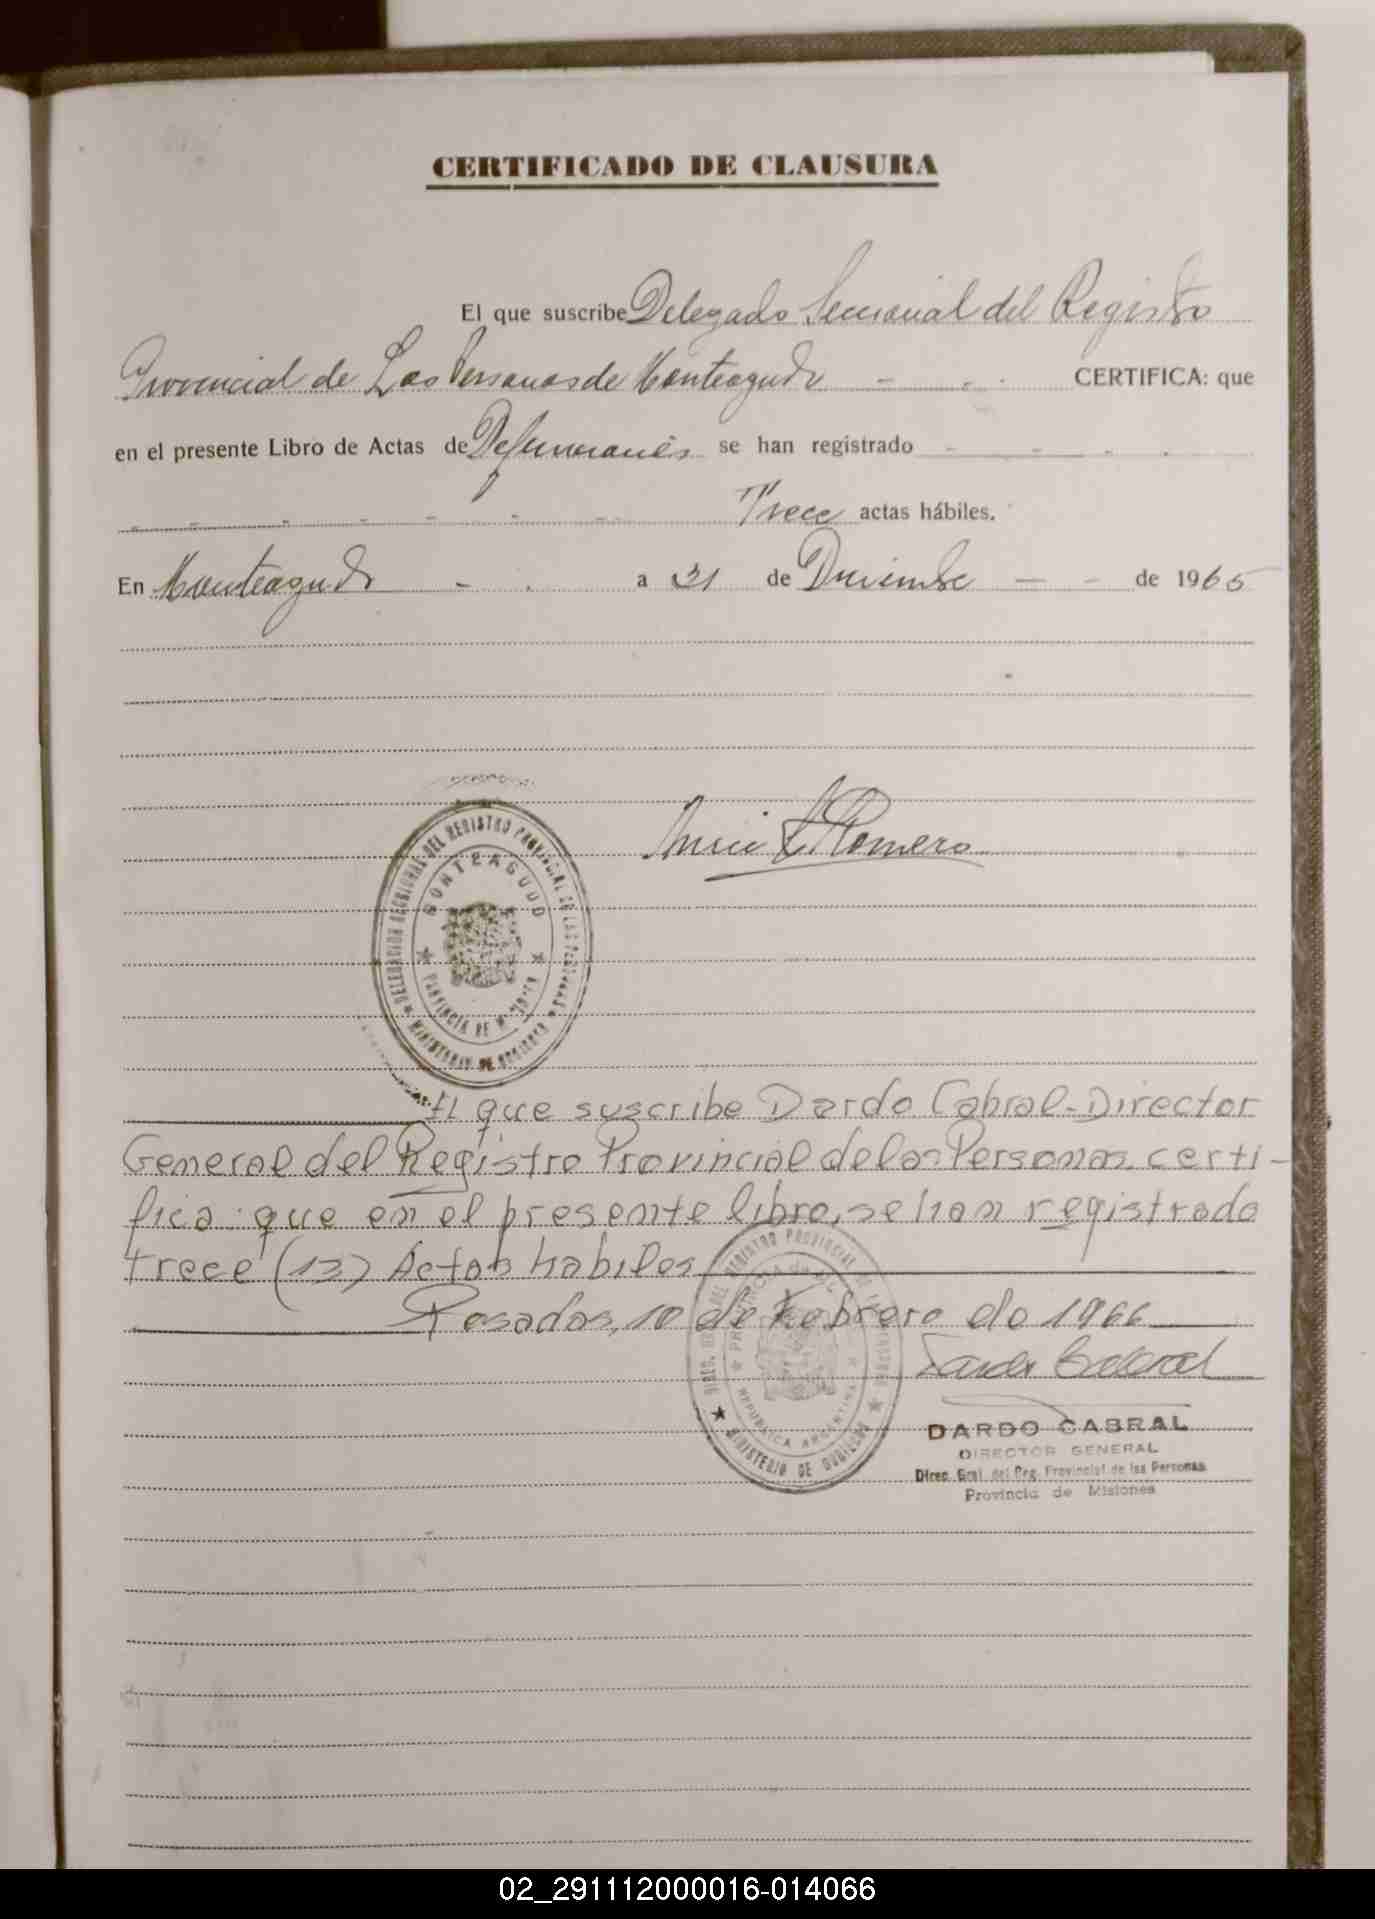 CERTIFICADO DE CLAUSURA
El que suscribe Delegado Seccional del Registro
Provincial de Las Personas de Monteagudo - - . CERTIFICA: que
en el presente Libro de Actas de Defunciones se han registrado - - - .
- - - - - - - Trece actas hábiles.
En Monteagudo - . a 31 de Diciembre - - de 1965
Romero
DELEGACION SECCIONAL DEL REGISTRO PROVINCIAL DE LAS PERSONAS
MONTEAGUDO
PROVINCIA DE MISIONES
MINISTERIO DE GOBIERNO
El que suscribe Dardo Cabral-Director
General del Registro Provincial de las Personas, certi-
fica: que en el presente libro, se han registrado
trece (13) Actas habiles
Posadas, 10 de Febrero de 1966
Dardo Cabral
DEL REGISTRO PROVINCIAL DE LAS PERSONAS
PROVINCIA de
REPUBLICA ARGENTINA
MINISTERIO DE GOBIERNO
DARDO CABRAL
DIRECTOR GENERAL
Direc. Gral. del Reg. Provincial de las Personas
Provincia de Misiones
02_291112000016-014066